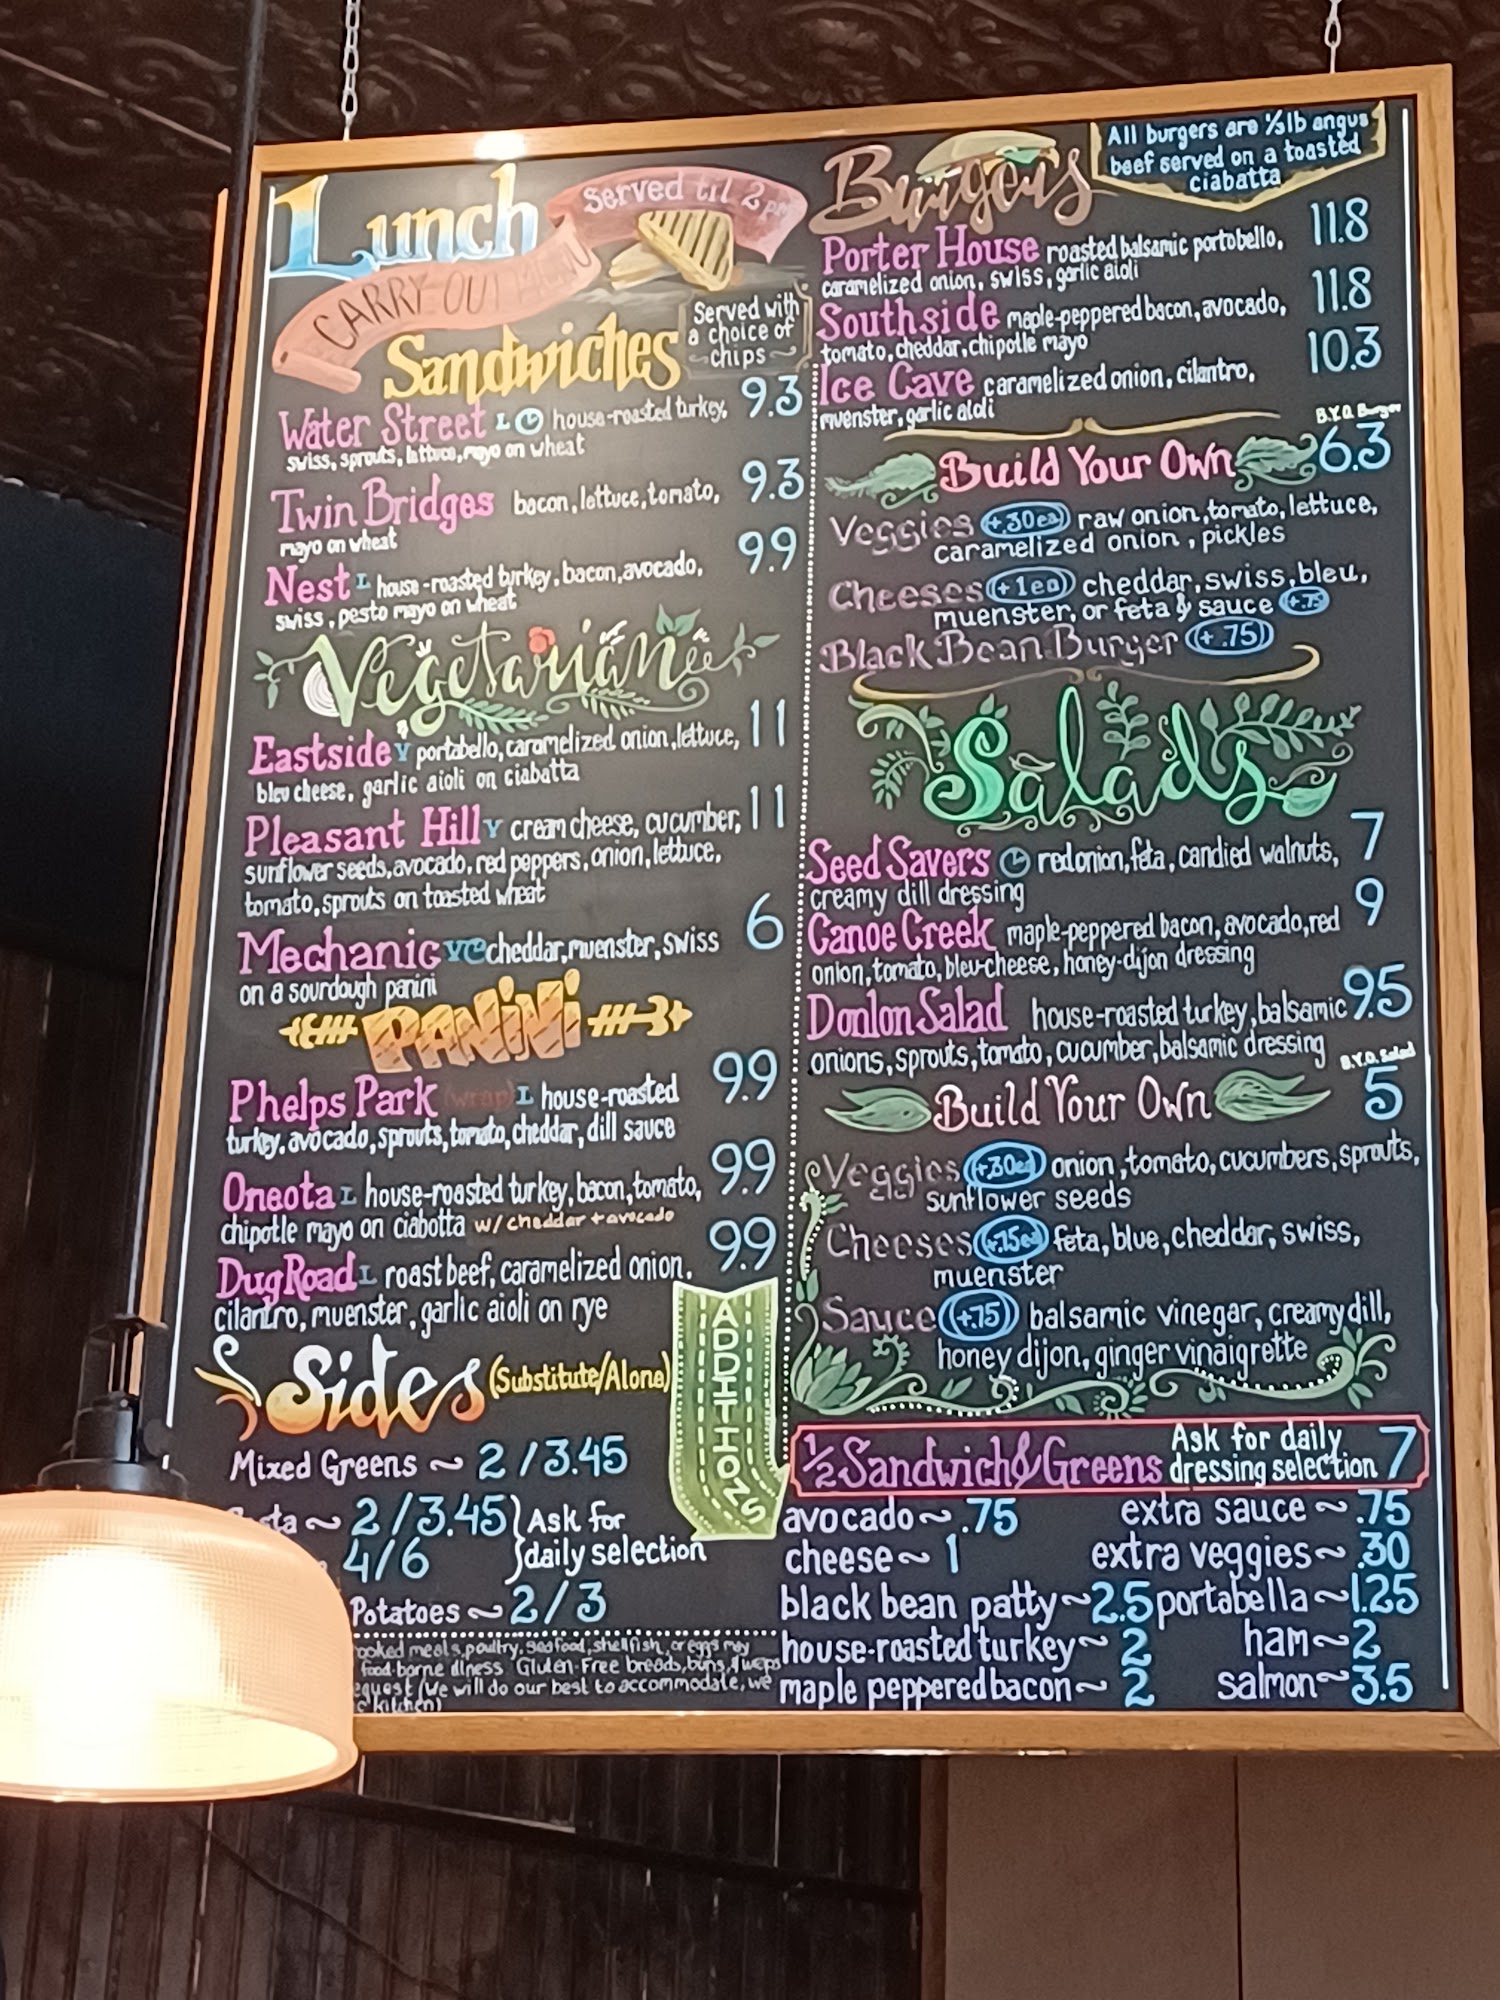 Lunch
Served til 2pm
CARRY OUT MENU
Sandwiches
Served with
a choice of
chips
Water Street L house-roasted turkey, 9.3
swiss, sprouts, lettuce, mayo on wheat
Twin Bridges bacon, lettuce, tomato, 9.3
mayo on wheat
Nest L house-roasted turkey, bacon, avocado, 9.9
swiss, pesto mayo on wheat
Vegetarian
Eastside V portabello, caramelized onion, lettuce, 11
bleu cheese, garlic aioli on ciabatta
Pleasant Hill V cream cheese, cucumber, 11
sunflower seeds, avocado, red peppers, onion, lettuce,
tomato, sprouts on toasted wheat
Mechanic VC cheddar, muenster, swiss 6
on a sourdough panini
PANiNi
Phelps Park (wrap) L house-roasted 9.9
turkey, avocado, sprouts, tomato, cheddar, dill sauce
Oneota L house-roasted turkey, bacon, tomato, 9.9
chipotle mayo on ciabatta w/ cheddar + avocado
Dug Road L roast beef, caramelized onion, 9.9
cilantro, muenster, garlic aioli on rye
Sides (Substitute/Alone)
Mixed Greens ~ 2/3.45
~ 2/3.45 Ask for
4/6 daily selection
Potatoes ~ 2/3
meats, poultry, seafood, shellfish, or eggs may
food-borne illness Gluten-Free breads, buns, & wraps
(We will do our best to accommodate, we
kitchen)
ADDITIONS
Burgers
All burgers are ⅓lb angus
beef served on a toasted
ciabatta
Porter House roasted balsamic portobello, 11.8
caramelized onion, swiss, garlic aioli
Southside maple-peppered bacon, avocado, 11.8
tomato, cheddar, chipotle mayo
Ice Cave caramelized onion, cilantro, 10.3
muenster, garlic aioli
B.Y.O. Burger
Build Your Own 6.3
Veggies (+.30ea) raw onion, tomato, lettuce,
caramelized onion, pickles
Cheeses (+1ea) cheddar, swiss, bleu,
muenster, or feta & sauce (+.75)
Black Bean Burger (+.75)
Salads
Seed Savers red onion, feta, candied walnuts, 7
creamy dill dressing
Canoe Creek maple-peppered bacon, avocado, red 9
onion, tomato, bleu-cheese, honey-dijon dressing
Donlon Salad house-roasted turkey, balsamic 9.5
onions, sprouts, tomato, cucumber, balsamic dressing
B.Y.O. Salad
Build Your Own 5
Veggies (+.30ea) onion, tomato, cucumbers, sprouts,
sunflower seeds
Cheeses (+.75ea) feta, blue, cheddar, swiss,
muenster
Sauce (+.75) balsamic vinegar, creamy dill,
honey dijon, ginger vinaigrette
½ Sandwich & Greens Ask for daily
dressing selection 7
avocado ~ .75 extra sauce ~ .75
cheese ~ 1 extra veggies ~ .30
black bean patty ~ 2.5 portabella ~ 1.25
house-roasted turkey ~ 2 ham ~ 2
maple peppered bacon ~ 2 salmon ~ 3.5